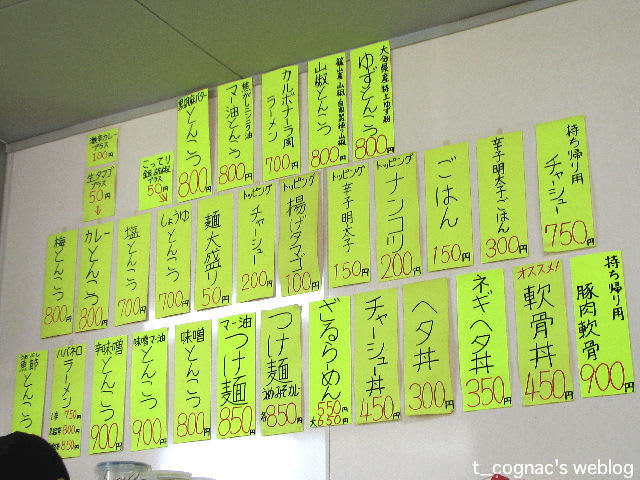 激辛カレー
プラス
100円
生タマゴ
プラス
50円
こってり
プラス
50円
とんこつ
800円
焦がしニンニク油
マー油とんこつ
800円
カルボナーラ風
ラーメン
700円
山椒とんこつ
800円
大分県産特上ゆず胡椒
ゆずとんこつ
800円
梅とんこつ
800円
カレーとんこつ
800円
塩とんこつ
700円
しょうゆとんこつ
700円
麺大盛り
50円
トッピング
チャーシュー
200円
トッピング
揚げタマゴ
100円
トッピング
辛子明太子
150円
トッピング
ナンコツ
200円
ごはん
150円
辛子明太子ごはん
300円
持ち帰り用
チャーシュー
750円
とんこつ
ハバネロ
ラーメン
750円
800円
850円
辛味噌
とんこつ
900円
味噌マー油
とんこつ
900円
味噌
とんこつ
800円
マー油
つけ麺
850円
つけ麺
850円
ざるらーめん
550円
大650円
チャーシュー丼
450円
ヘタ丼
300円
ネギヘタ丼
350円
オススメ!
軟骨丼
450円
持ち帰り用
豚肉軟骨
900円
t_cognac's weblog